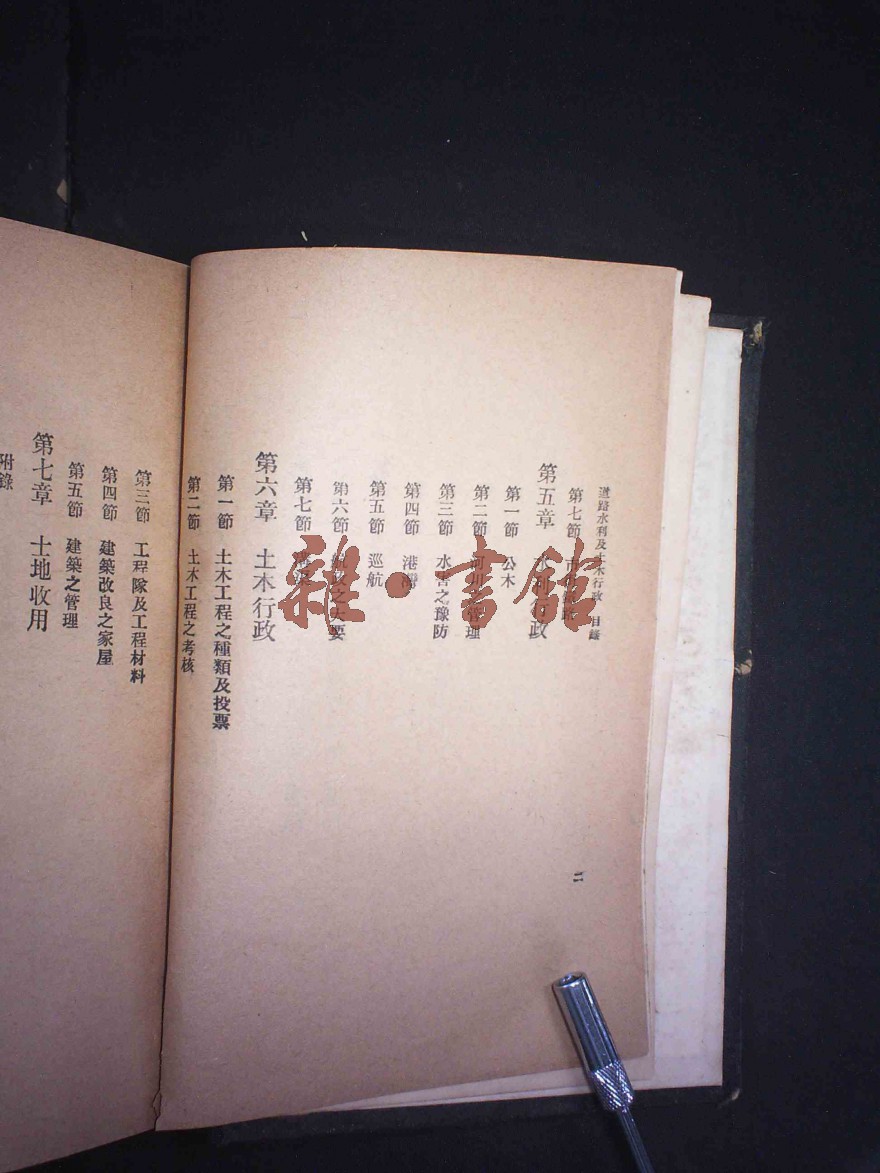 道路水利及土木行政 目錄
第七節 市
第五章 水利行政
第一節 公木
第二節 河川之管理
第三節 水害之豫防
第四節 港灣
第五節 巡航
第六節 航政之大要
第七節
第六章 土木行政
第一節 土木工程之種類及投票
第二節 土木工程之考核
二
第三節 工程隊及工程材料
第四節 建築改良之家屋
第五節 建築之管理
第七章 土地收用
附錄
雜·書館